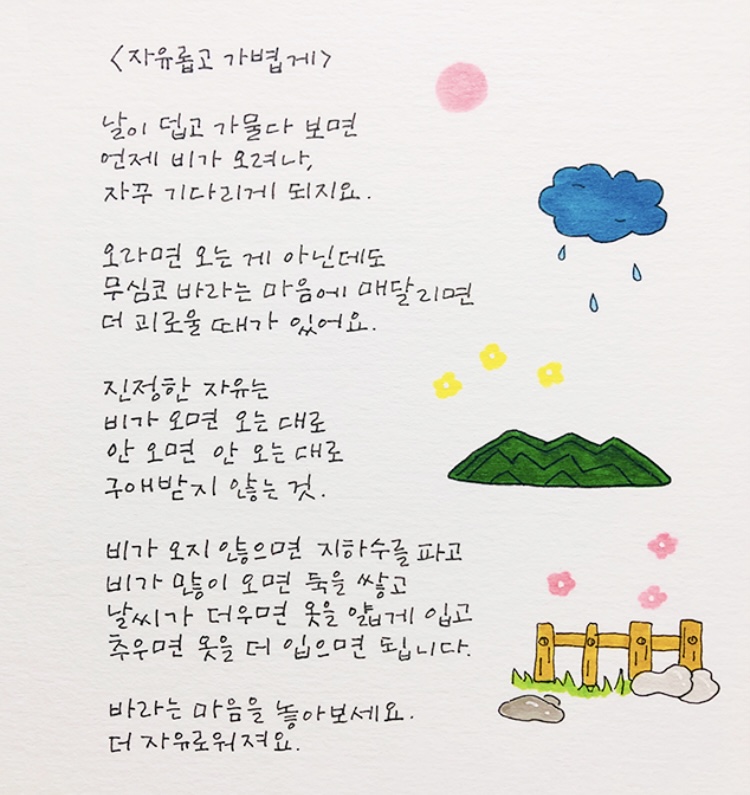 <자유롭고 가볍게>
날이 덥고 가물다 보면
언제 비가 오려나,
자꾸 기다리게 되지요.
오라면 오는 게 아닌데도
무심코 바라는 마음에 매달리면
더 괴로울 때가 있어요.
진정한 자유는
비가 오면 오는 대로
안 오면 안 오는 대로
구애받지 않는 것.
비가 오지 않으면 지하수를 파고
비가 많이 오면 둑을 쌓고
날씨가 더우면 옷을 얇게 입고
추우면 옷을 더 입으면 됩니다.
바라는 마음을 놓아보세요.
더 자유로워져요.